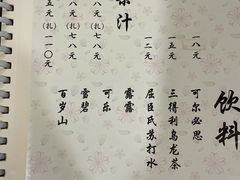 饮料
可尔必思 一八元
三得利乌龙茶 一五元
屈臣氏苏打水 一二元
露露
可乐
雪碧
百岁山
汁
元（扎）七八元
元（扎）七八元
五元（扎）一一〇元